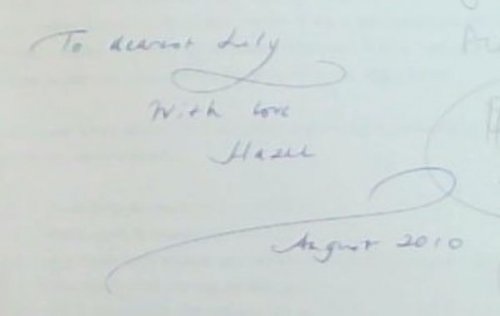 To dearest Lily
With love
Hazel
August 2010